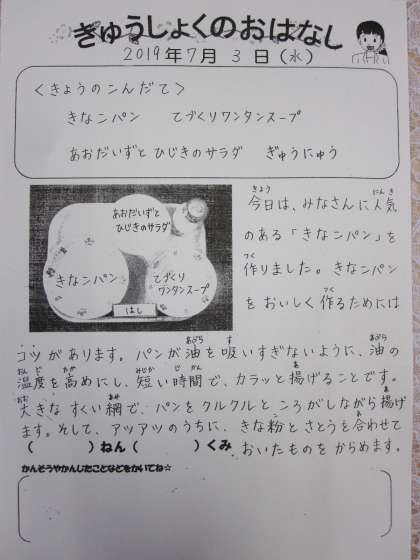 きゅうしょくのおはなし
2019年7月3日(水)
＜きょうのこんだて＞
きなこパン　てづくりワンタンスープ
あおだいずと ひじきのサラダ　ぎゅうにゅう
あおだいずと
ひじきのサラダ
きなこパン
てづくり
ワンタンスープ
はし
今日は、みなさんに人気
のある「きなこパン」を
作りました。きなこパン
をおいしく作るためには
コツがあります。パンが油を吸いすぎないように、油の
温度を高めにし、短い時間で、カラッと揚げることです。
大きなすくい網で、パンをクルクルところがしながら揚げ
ます。そして、アツアツのうちに、きな粉とさとうを合わせて
(　　)ねん(　　)くみ　おいたものをからめます。
かんそうやかんしたことなどをかいてね☆